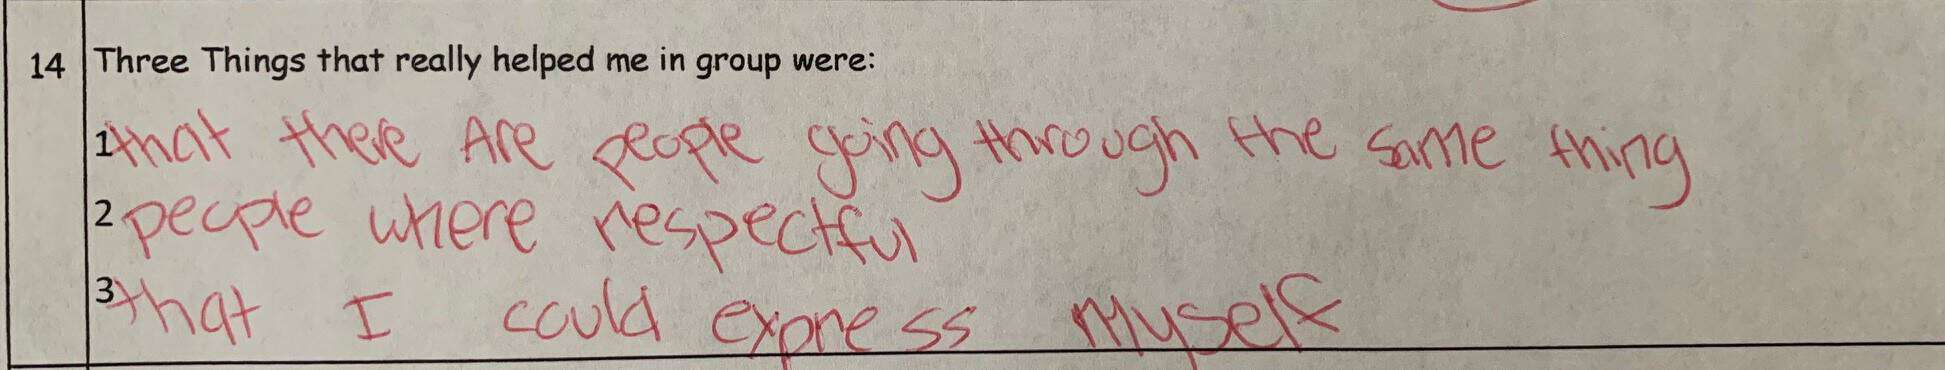 14 Three Things that really helped me in group were:
1 that there Are people going through the same thing
2 people where respectful
3 that I could express myself